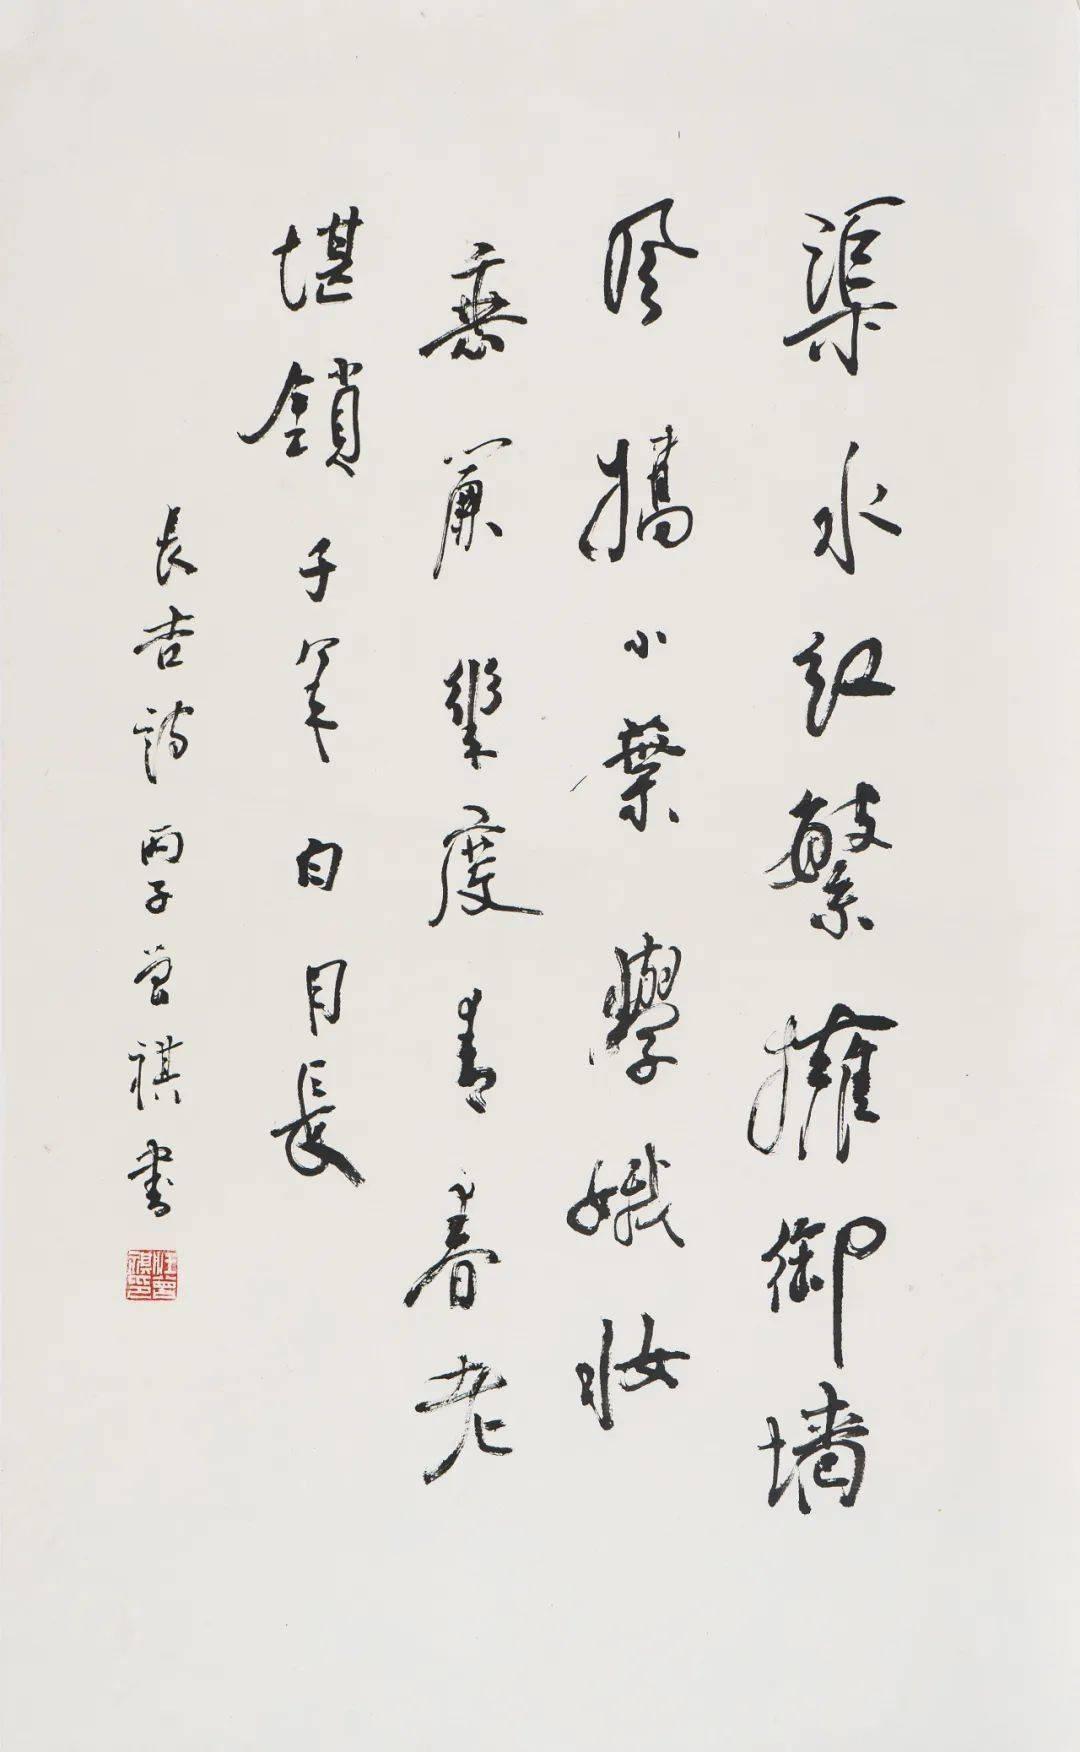 渠水红繁擁御墙
風嬌小葉學娥妝
垂簾幾度青春老
堪鎖千年白日長
長吉詩 丙子曾祺書
汪曾祺印